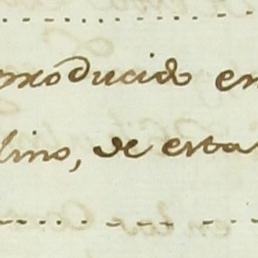 producido en
lino, de esta